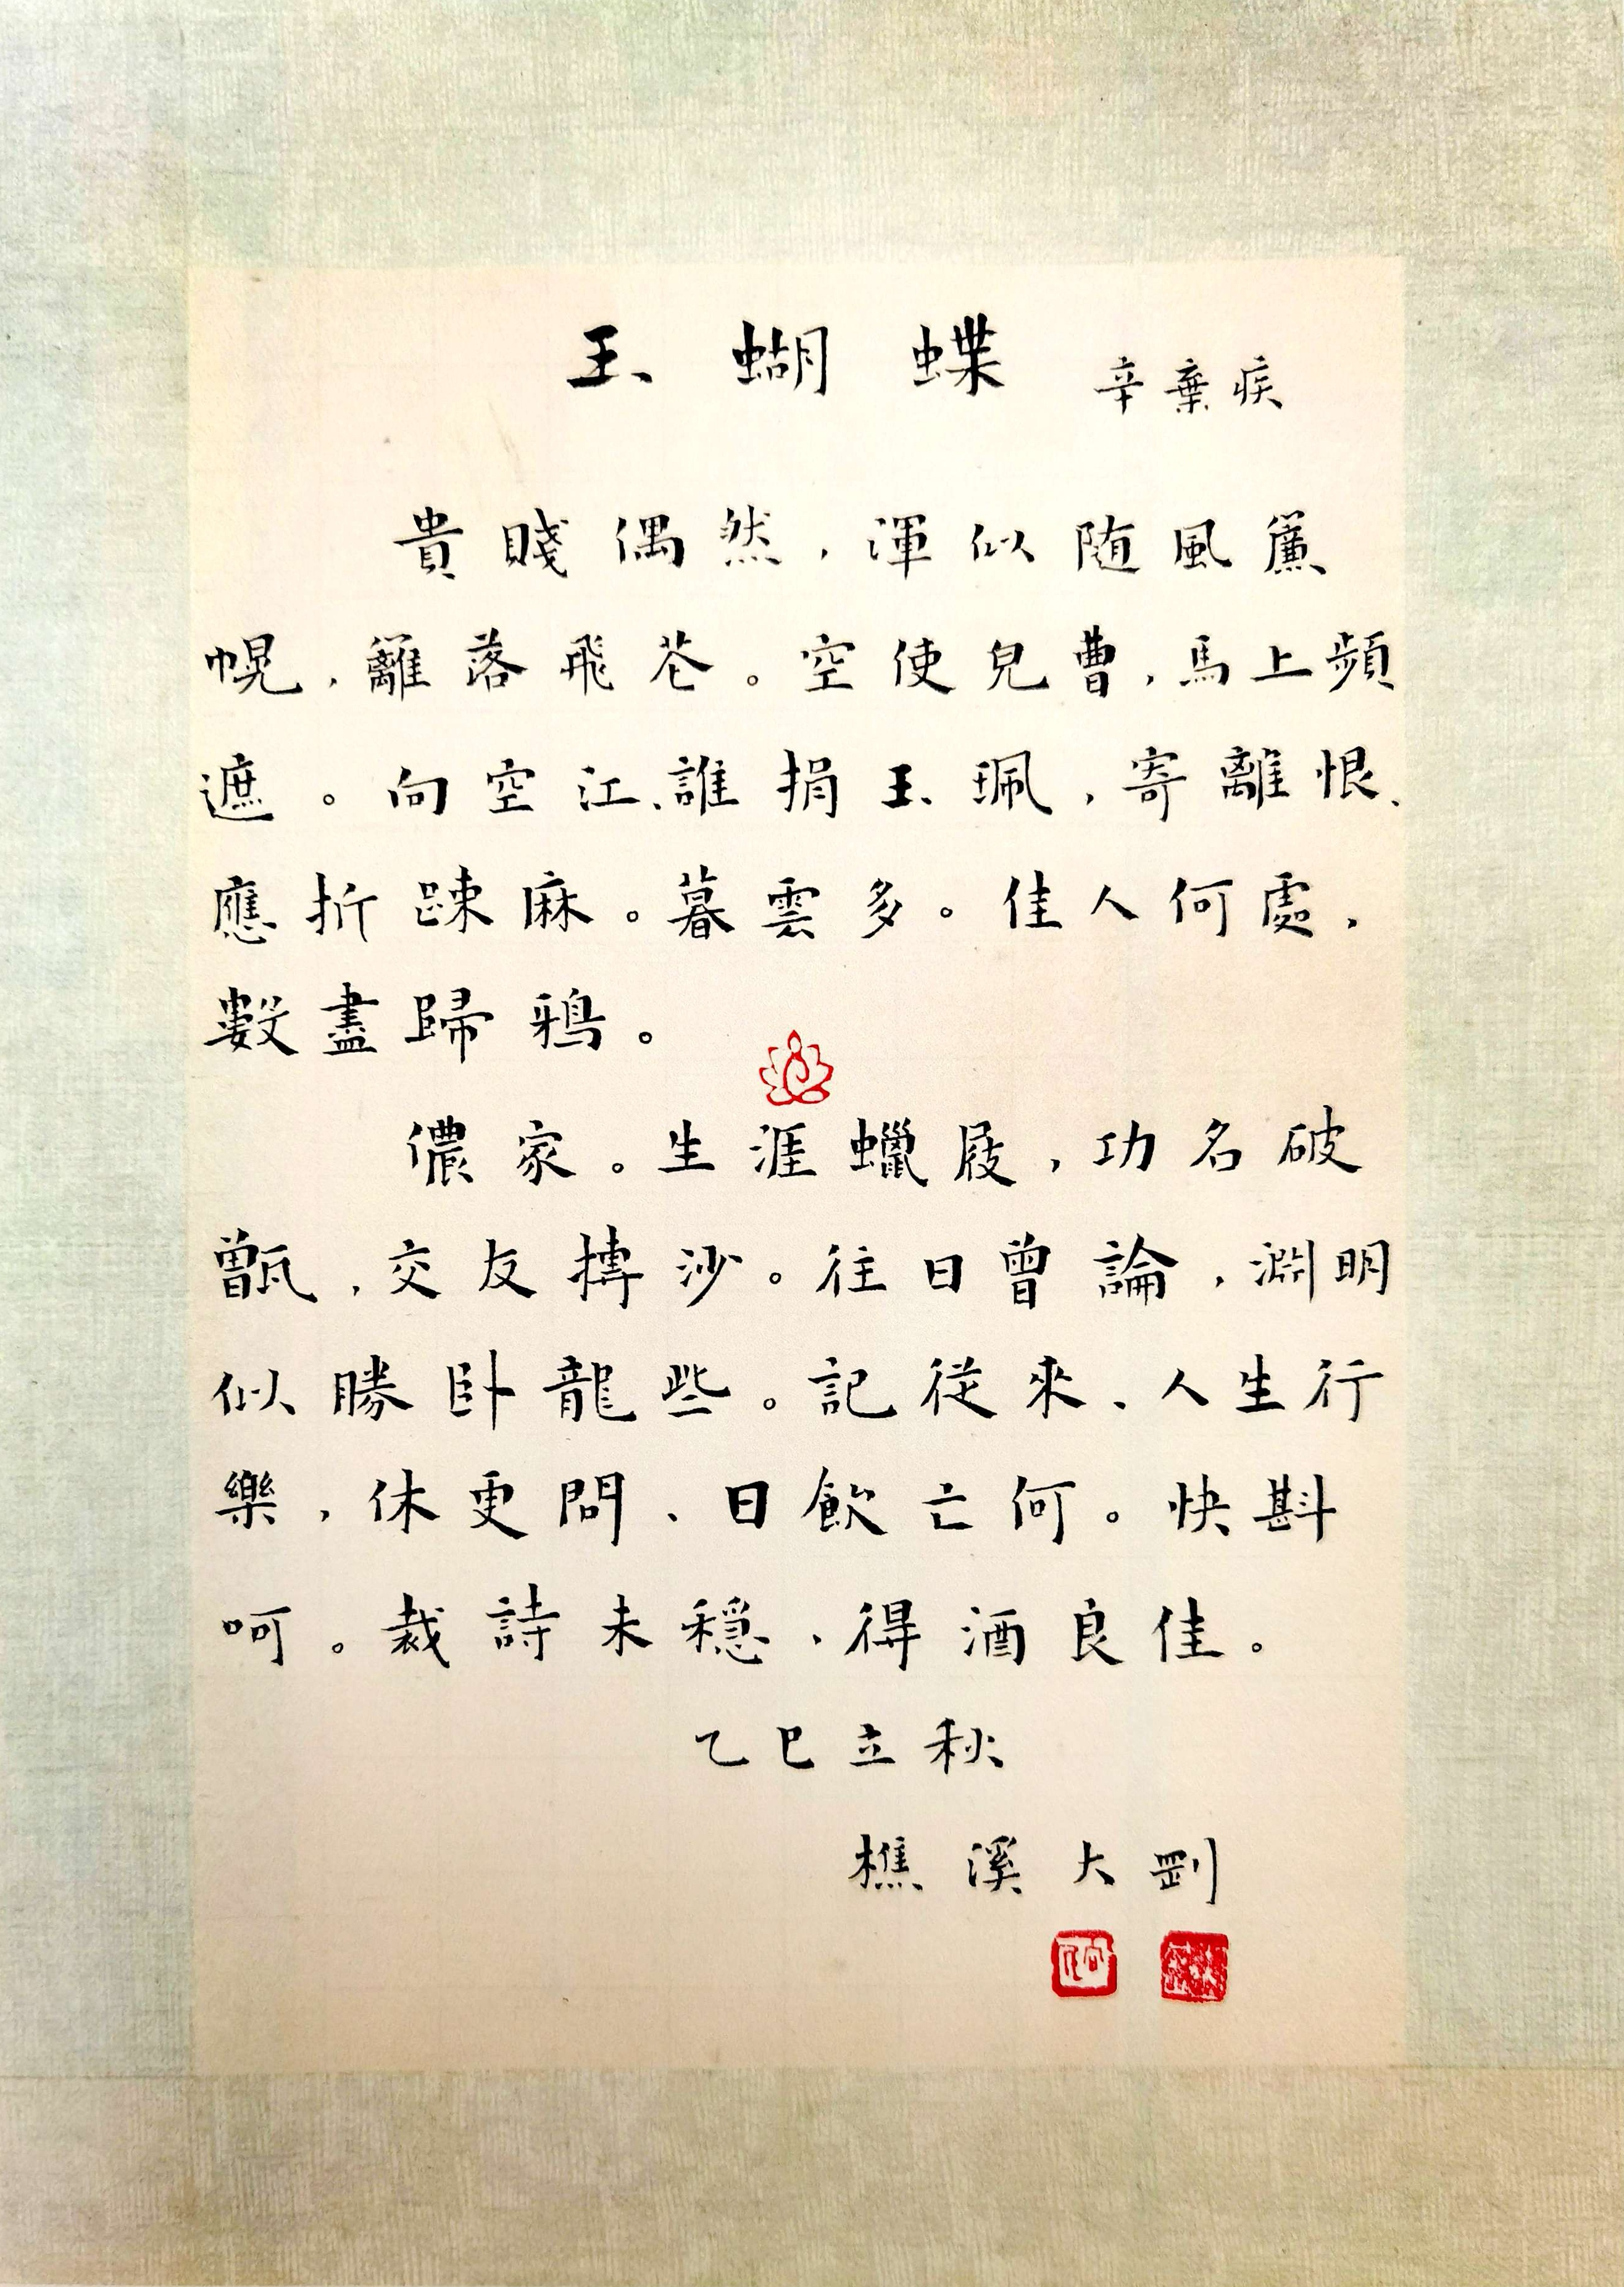 玉蝴蝶 辛棄疾
貴賤偶然，渾似随風簾
幌，籬落飛花。空使兒曹，馬上頻
遮。向空江、誰捐玉珮，寄離恨、
應折疎麻。暮雲多。佳人何處，
數盡歸鴉。
儂家。生涯蠟屐，功名破
甑，交友摶沙。往日曾論，淵明
似勝卧龍些。記從來、人生行
樂，休更問、日飲亡何。快斟
呵。裁詩未穩，得酒良佳。
乙巳立秋
樵溪大剛